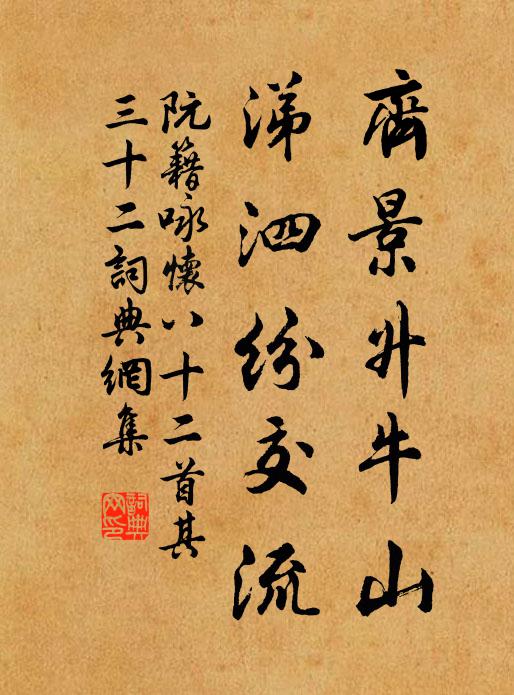 齊景升牛山
涕泗紛交流
阮籍詠懷八十二首其
三十二詞典網集
詞典
网印